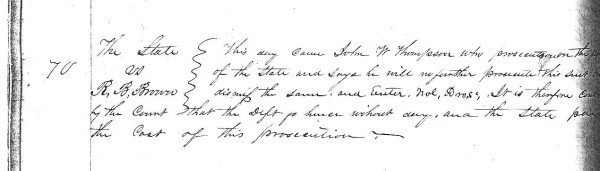 The State } This day came John W Thompson who prosecutes on the
70 vs of the State and says he will no further prosecute this suit
R. B. Brown } dismiss the same and Enter, Nol, Pros, It is therefore
by the Court } that the Deft go hence without day, and the State
the Cost of this prosecution